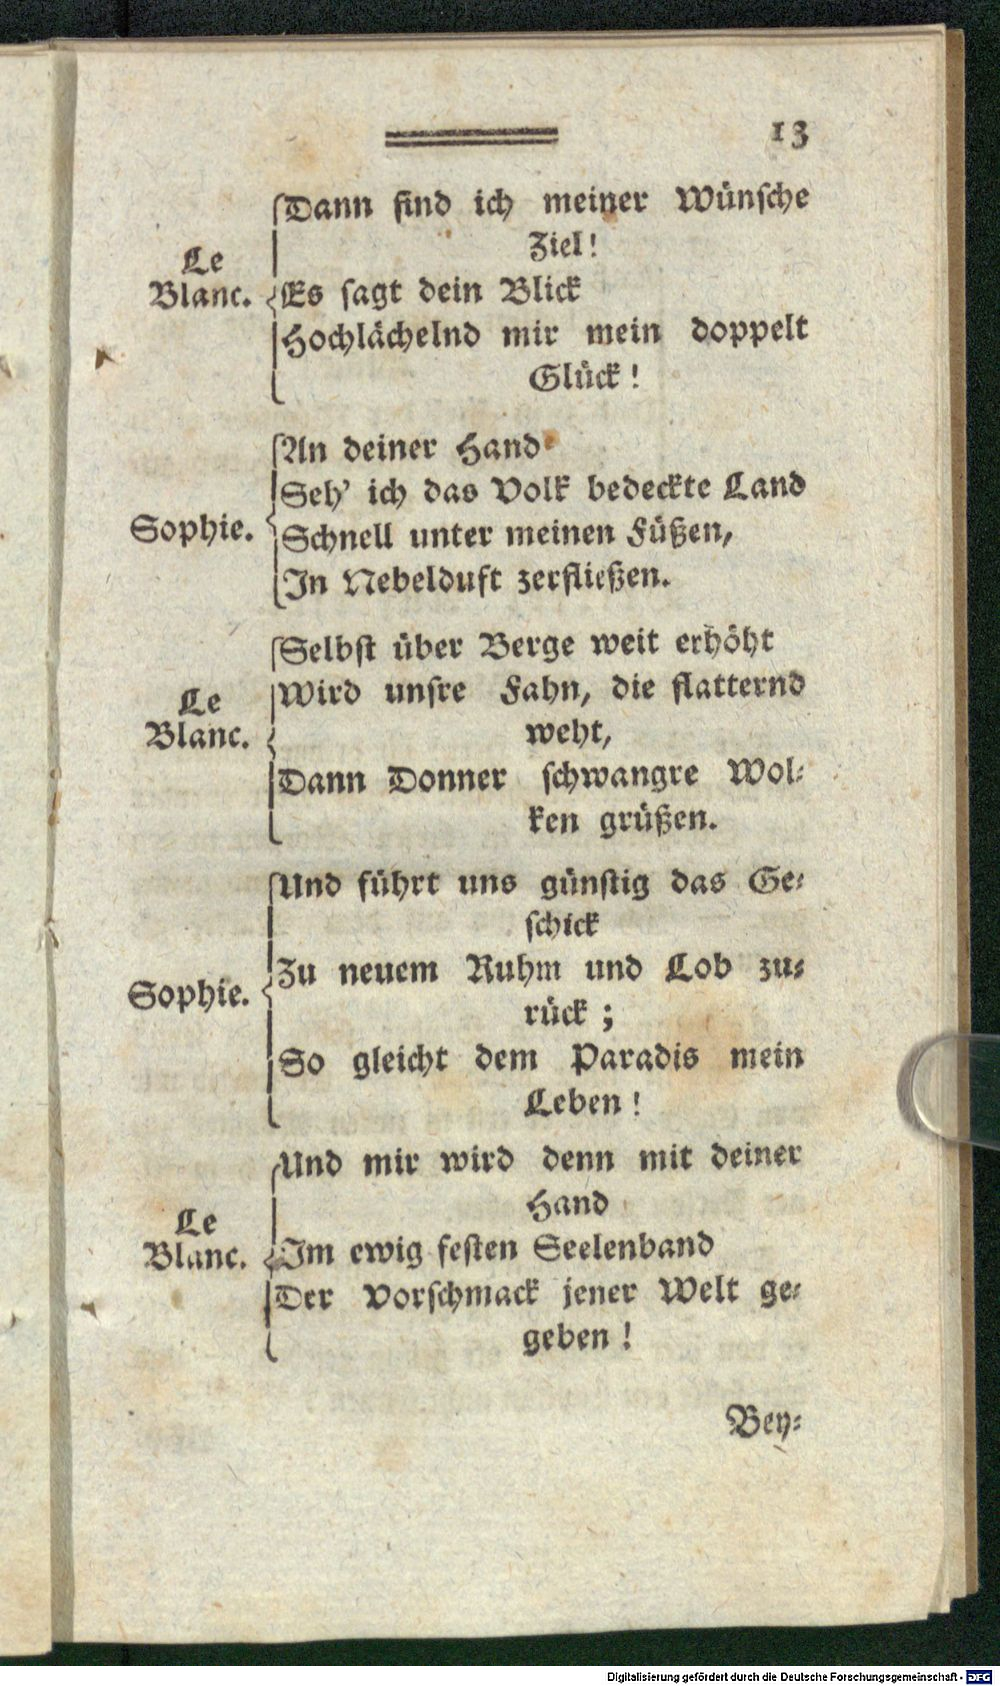 13
Dann find ich meiner Wünsche
Ziel!
Le
Blanc.
Es sagt dein Blick
Hochlächelnd mir mein doppelt
Glück!
An deiner Hand
Seh' ich das Volk bedeckte Land
Sophie.
Schnell unter meinen Füßen,
In Nebelduft zerfließen.
Selbst über Berge weit erhöht
Le
Blanc.
Wird unsre Fahn, die flatternd
weht,
Dann Donner schwangre Wol-
ken grüßen.
Und führt uns günstig das Ge-
schick
Sophie.
Zu neuem Ruhm und Lob zu-
rück;
So gleicht dem Paradis mein
Leben!
Und mir wird denn mit deiner
Hand
Le
Blanc.
Im ewig festen Seelenband
Der Vorschmack jener Welt ge-
geben!
Bey-
Digitalisierung gefördert durch die Deutsche Forschungsgemeinschaft - DFG